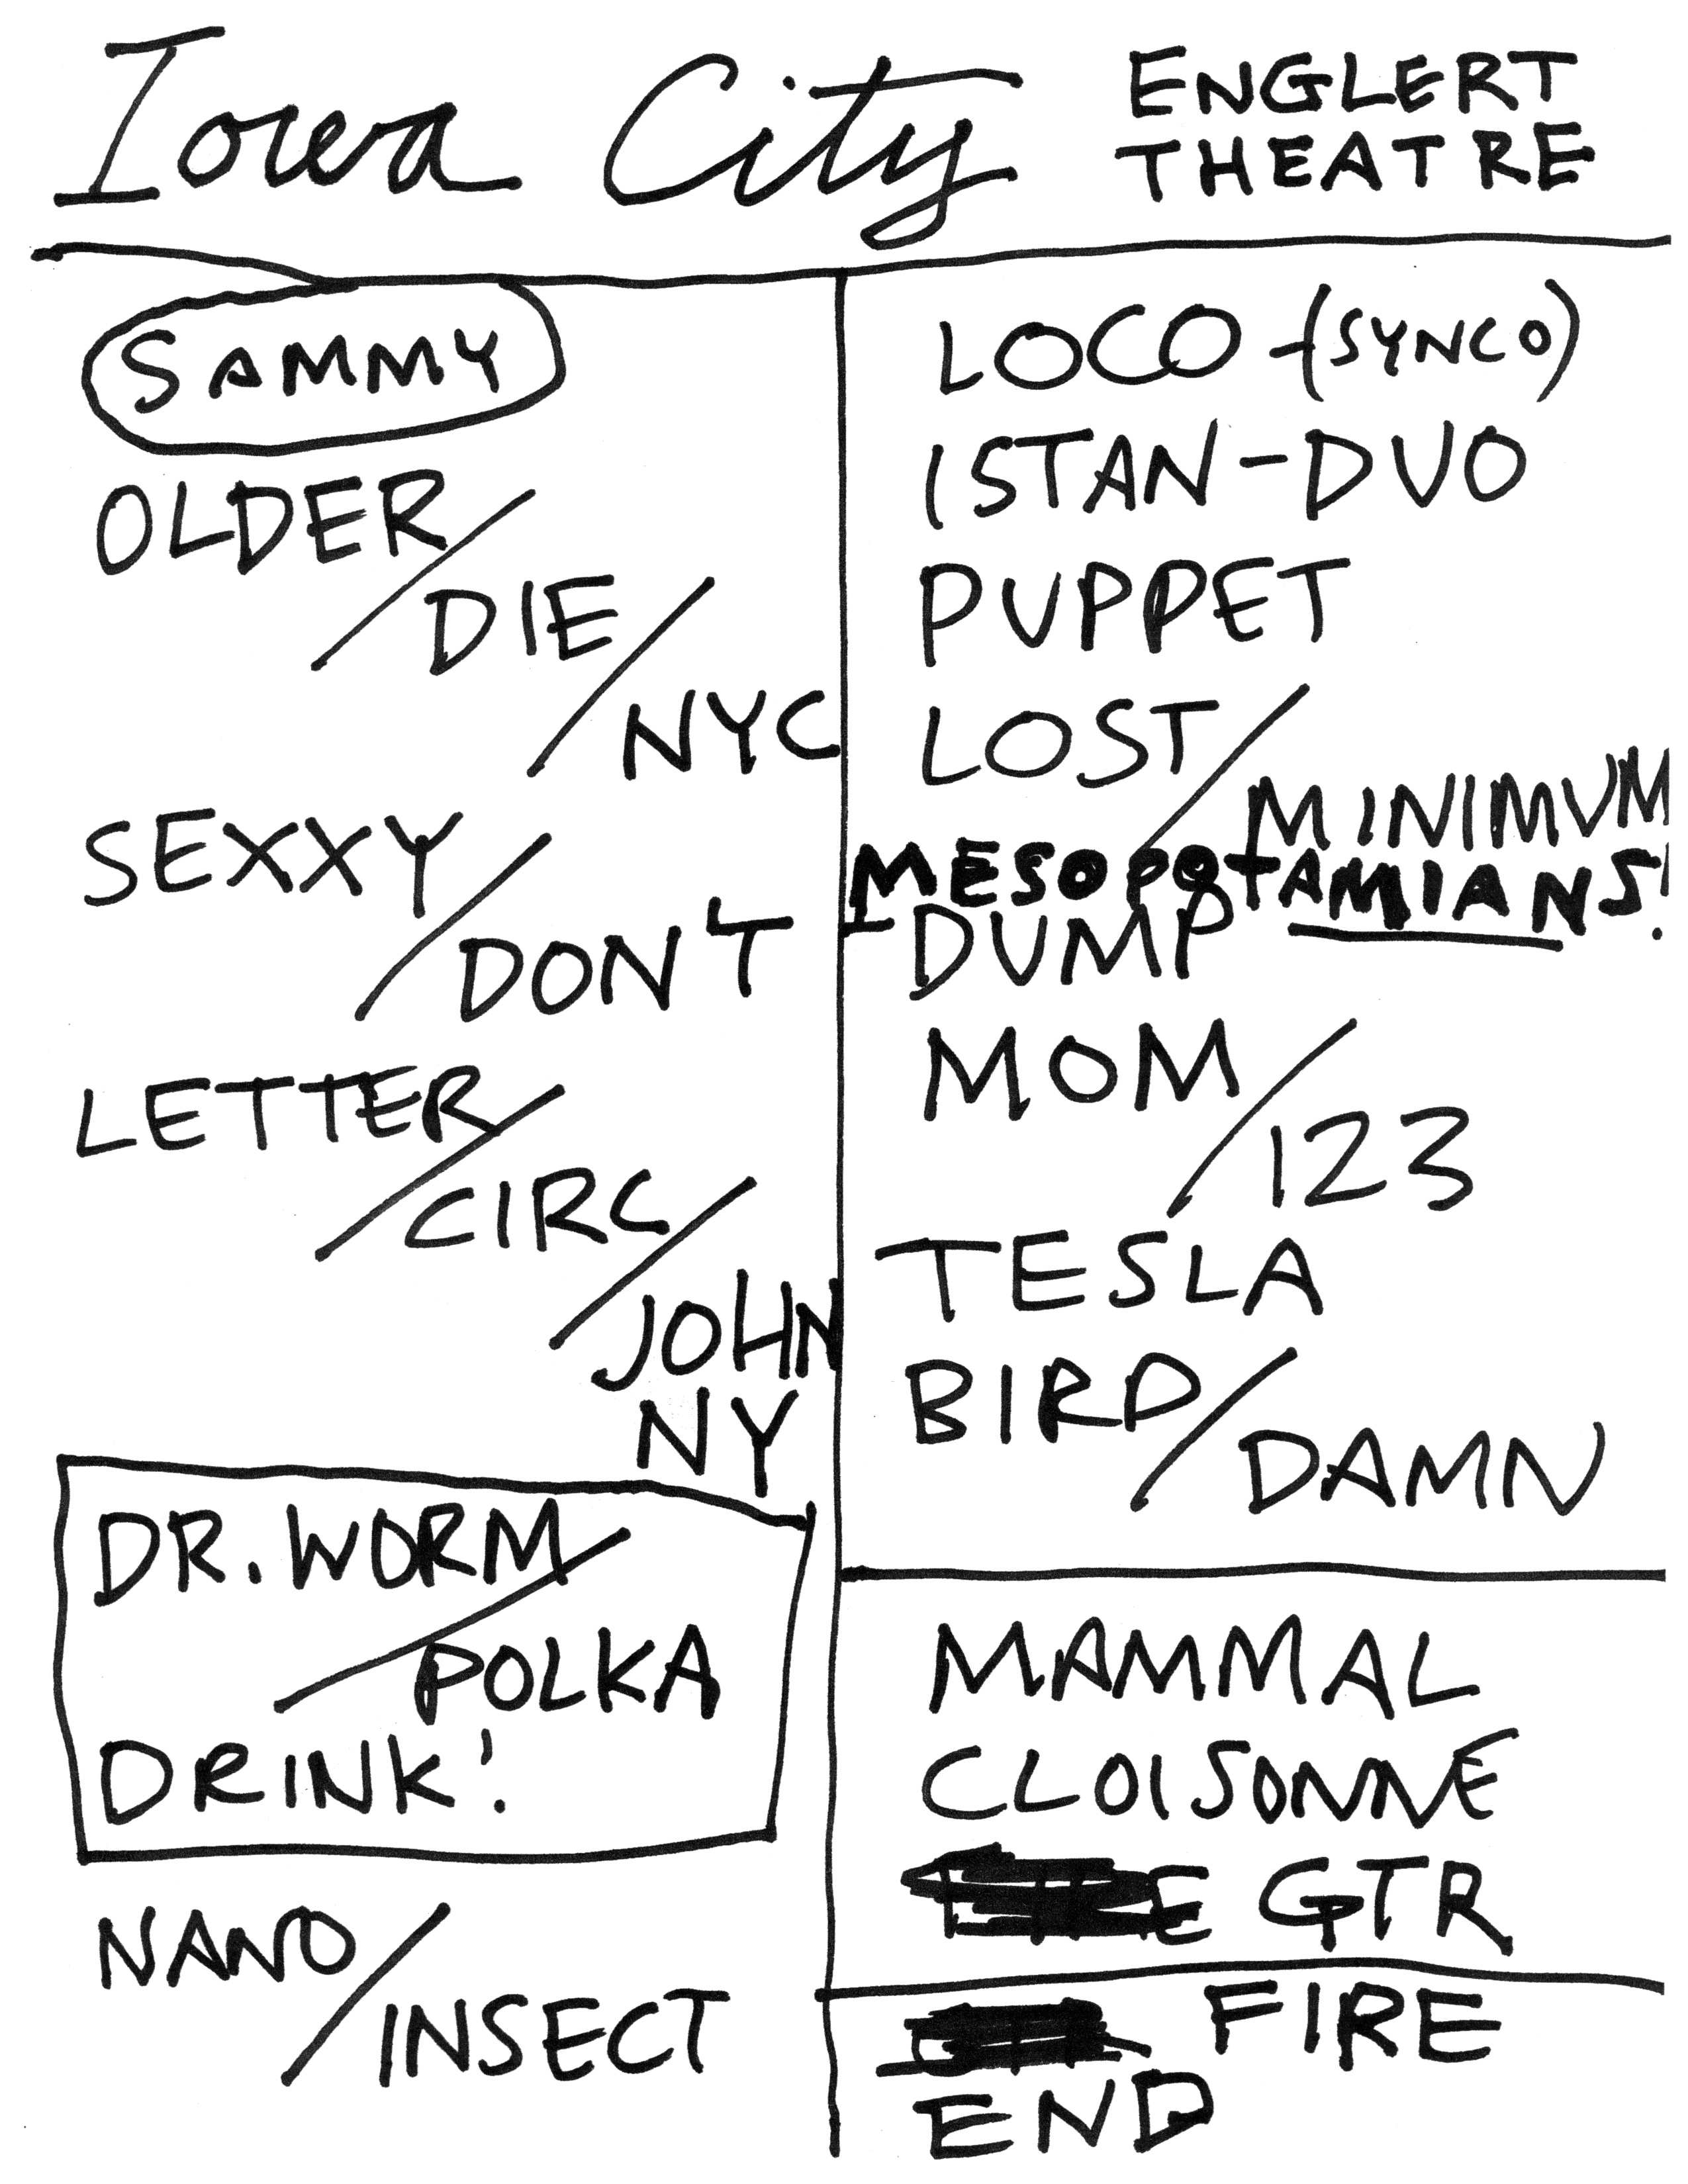 Iowa City ENGLERT
THEATRE
SAMMY
OLDER/
DIE/
NYC
SEXXY/
DON'T
LETTER/
CIRC/
JOHN
NY
DR. WORM/
POLKA
DRINK!
NANO/
INSECT
LOCO-(SYNCO)
ISTAN-DUO
PUPPET
LOST/
MINIMUM
MESOPOTAMIANS!
DUMP
MOM/
123
TESLA
BIRD/
DAMN
MAMMAL
CLOISONNE
GTR
FIRE
END